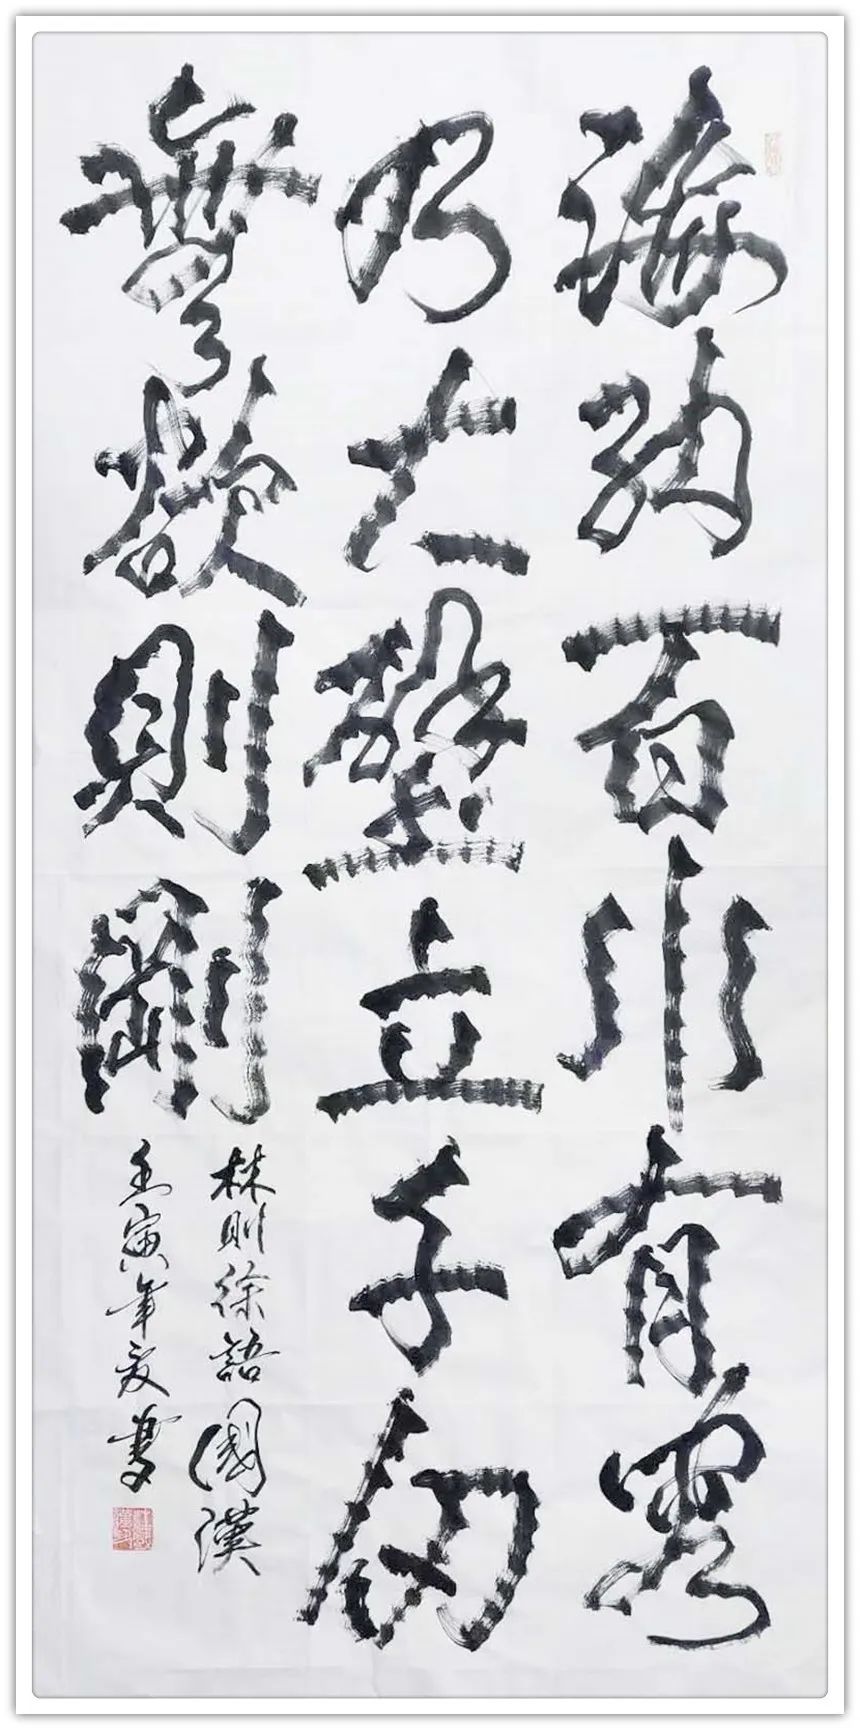 海納百川有容
乃大壁立千仞
無欲則剛
林則徐語國漢
壬寅年夏書